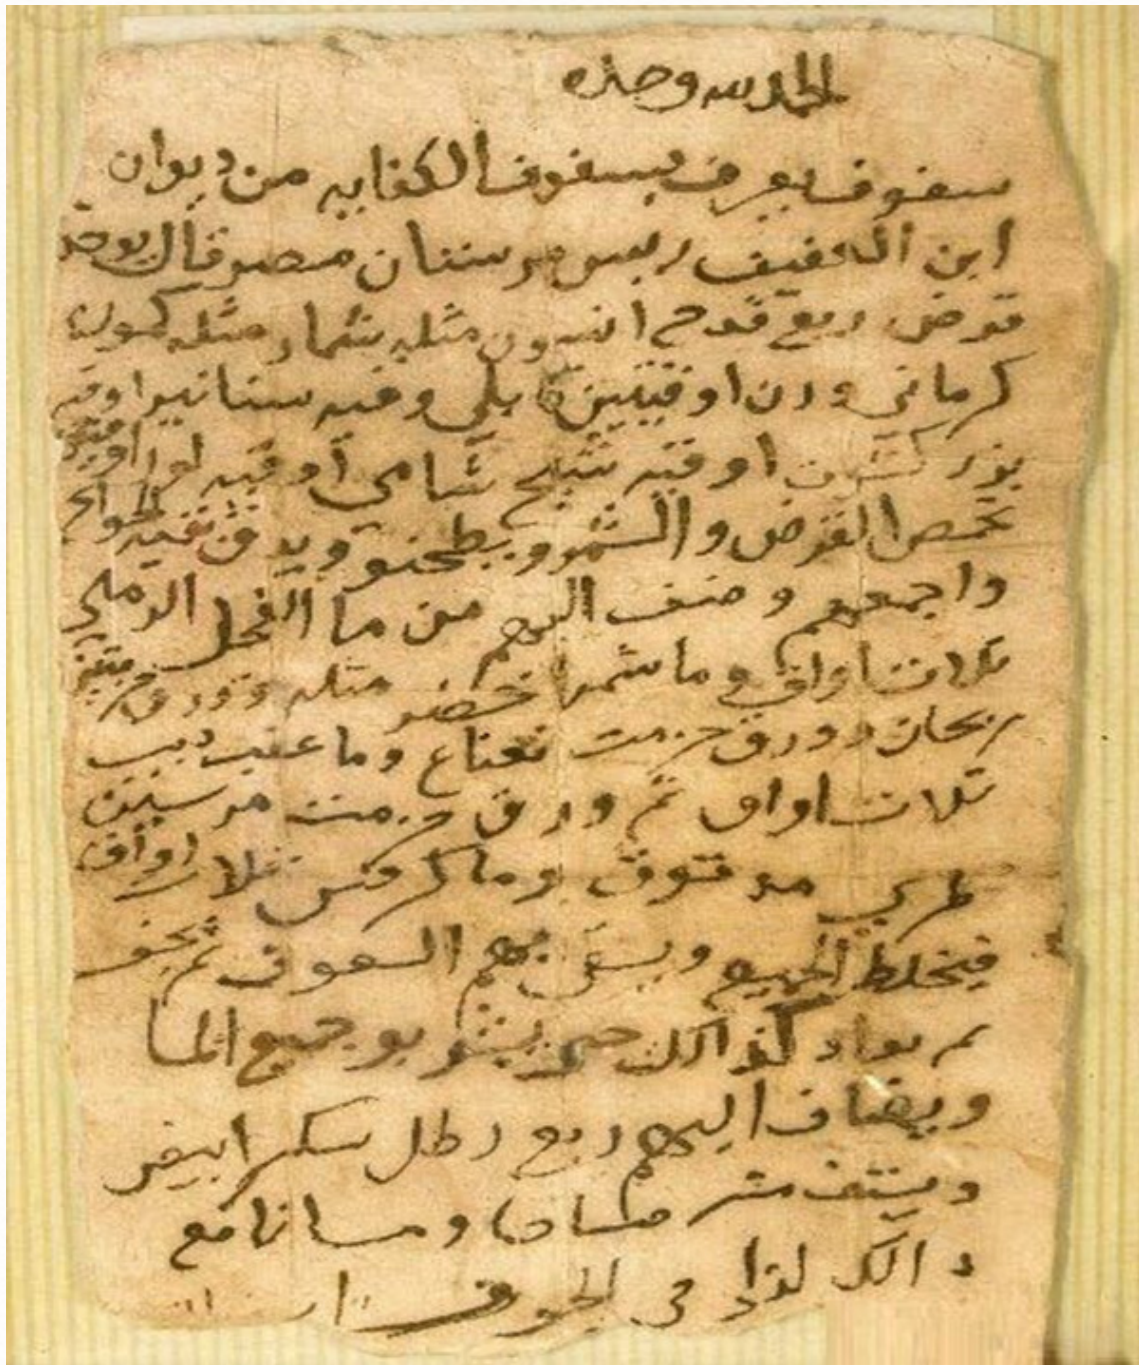 الحمد لله وحده
سفوف يعرف بسفوف الكفايه من ديوان
ابن العفيف ريس مرستان مصر قال يوخذ
قرض ربع قدح انيسون مثله شمار مثله كمون
كرماني وزن اوقيتين كابلي وقيه سنانير اوقيه
بزر كشوت اوقيه شيح شامي اوقيه
تحمص القرض والشمر ويطحنو ويدق بقيه الحوايج
واجمعهم وضف اليهم من ما الفجل الرملي
تلات اواق وما شمر اخضر مثله وورق
ريحان وورق حزمت نعناع وما عنب ديب
تلات اواق تم ورق حزمت مرسين
طري مدقوق وما كرفس تلات اواق
فيخلط الجميع ويسقى بهم السفوف تم يجفف
تم يعاد كذالك حتى يشربو جميع الما
ويضاف اليهم ربع رطل سكر ابيض
ويستف منه صباحا ومسا نافع
دالك لدا في الجوف